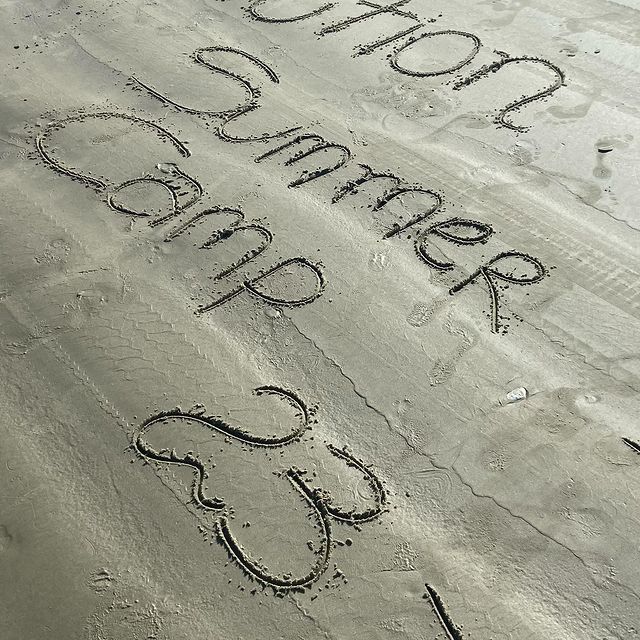 ction
Summer
Camp
23